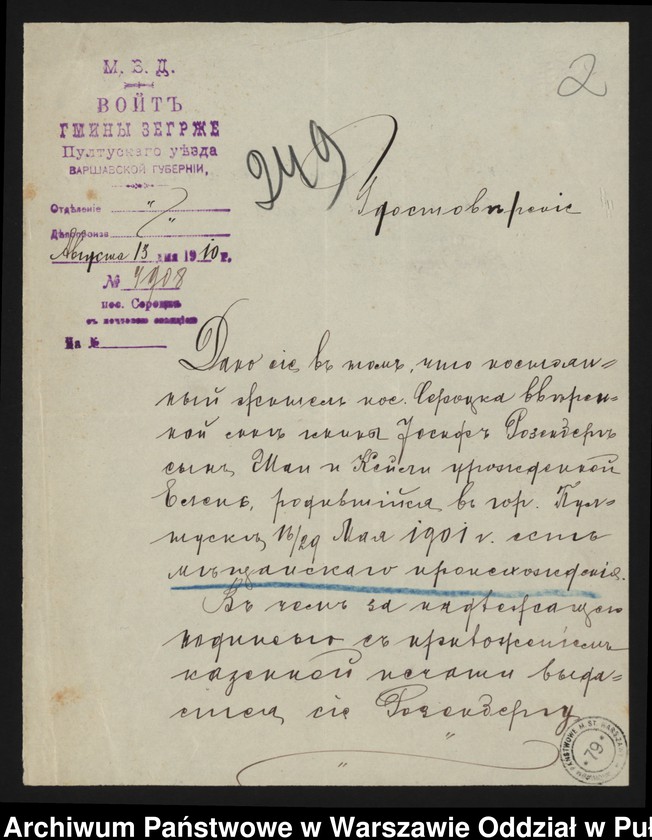 М. В. Д.
ВОЙТЪ
ГМИНЫ ЗЕГРЖЕ
Пултускаго уѣзда
ВАРШАВСКОЙ ГУБЕРНІИ,
Отдѣленіе "
"
Августа 13 дня 1910 г.
№ 4908
пос. Сероцкъ
На №
249
2
Удостовѣреніе
Дано сіе въ томъ, что постоян=
ный житель пос. Сероцка ввѣрен=
ной мнѣ гмины Іосифъ Розенбергъ
сынъ Шаи и Кейли урожденной
родившійся въ гор. Пул=
тускѣ 16/29 Мая 1901 г. есть
мѣщанскаго происхожденія.
Въ чемъ за надлежащею
подписью съ приложеніемъ
казенной печати выда=
ется сіе Розенбергу
79
Archiwum Państwowe w Warszawie Oddział w Puł